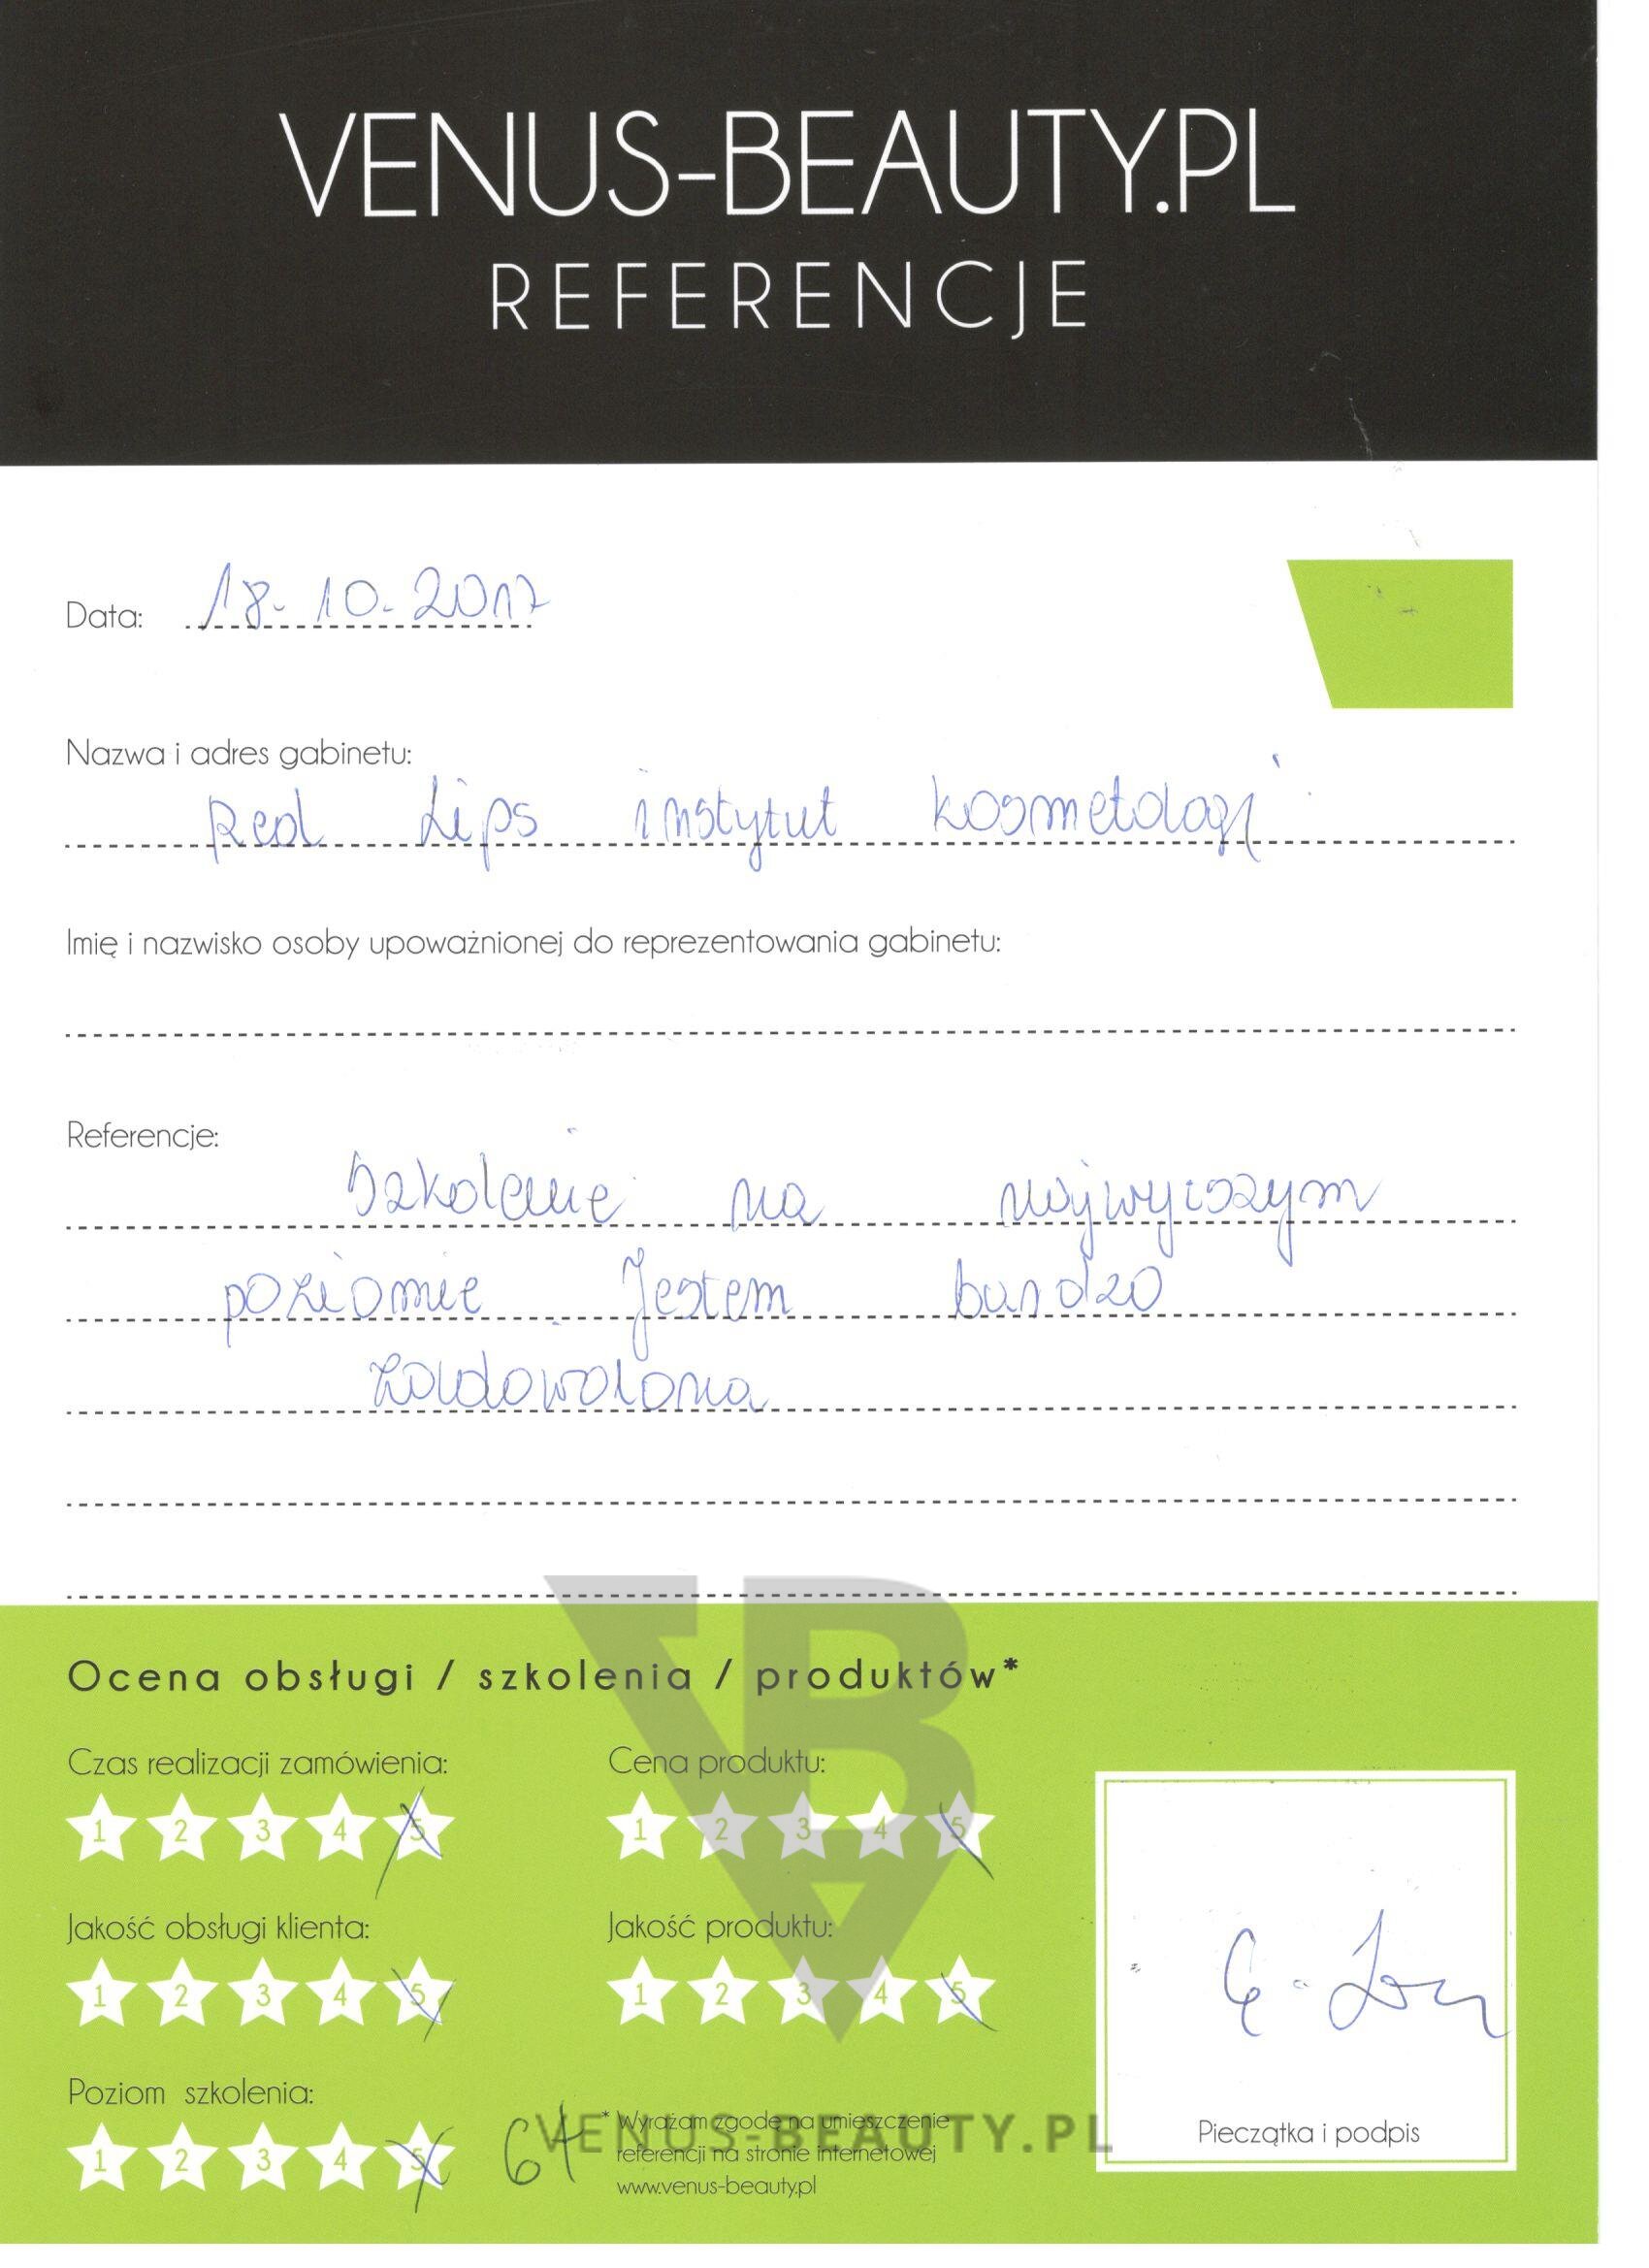 VENUS-BEAUTY.PL
REFERENCJE
Data: 18-10-2017
Nazwa i adres gabinetu:
Red Lips instytut kosmetologi
Imię i nazwisko osoby upoważnionej do reprezentowania gabinetu:
Referencje:
Szkolenie na najwyższym
poziomie. Jestem bardzo
zadowolona
Ocena obsługi / szkolenia / produktów*
Czas realizacji zamówienia:
1 2 3 4 5
Cena produktu:
1 2 3 4 5
Jakość obsługi klienta:
1 2 3 4 5
Jakość produktu:
1 2 3 4 5
Poziom szkolenia:
1 2 3 4 5
* Wyrażam zgodę na umieszczenie
referencji na stronie internetowej
www.venus-beauty.pl
VENUS-BEAUTY.PL
Pieczątka i podpis